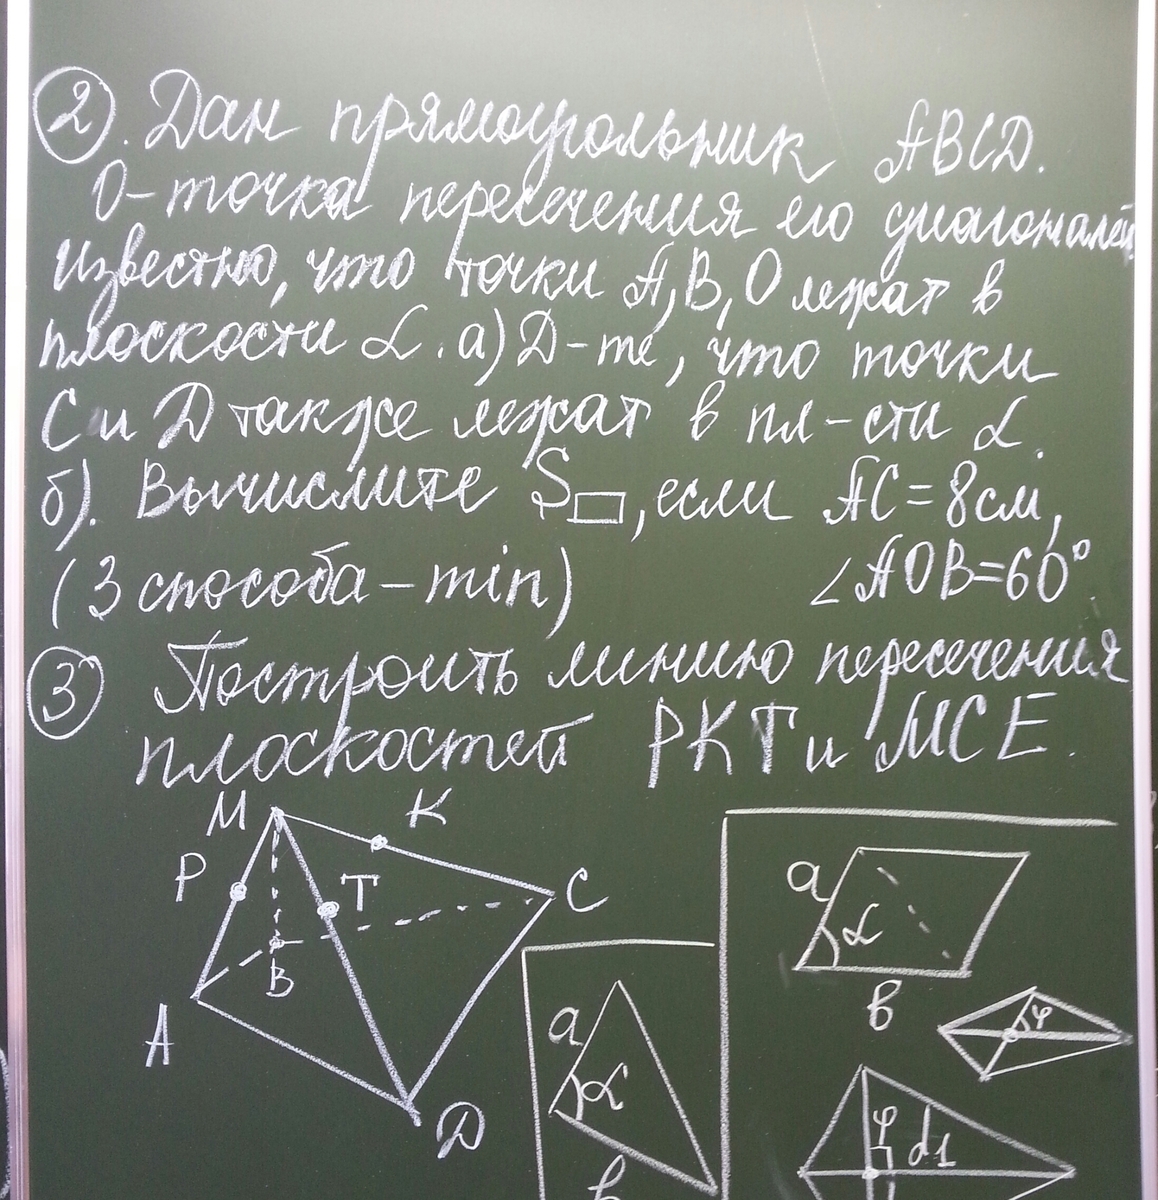 2. Дан прямоугольник ABCD.
О-точка пересечения его диагоналей
известно, что точки А, В, О лежат в
плоскости α. а) Д-те, что точки
С и D также лежат в пл-сти α.
б). Вычислите S▭, если АС=8см,
(3 способа-min) ∠AOB=60°.
3 Построить линию пересечения
плоскостей РКТ и МСЕ.
М К
Р Т С
В
А
D
a α
в
φ
a
α
в
φ d1